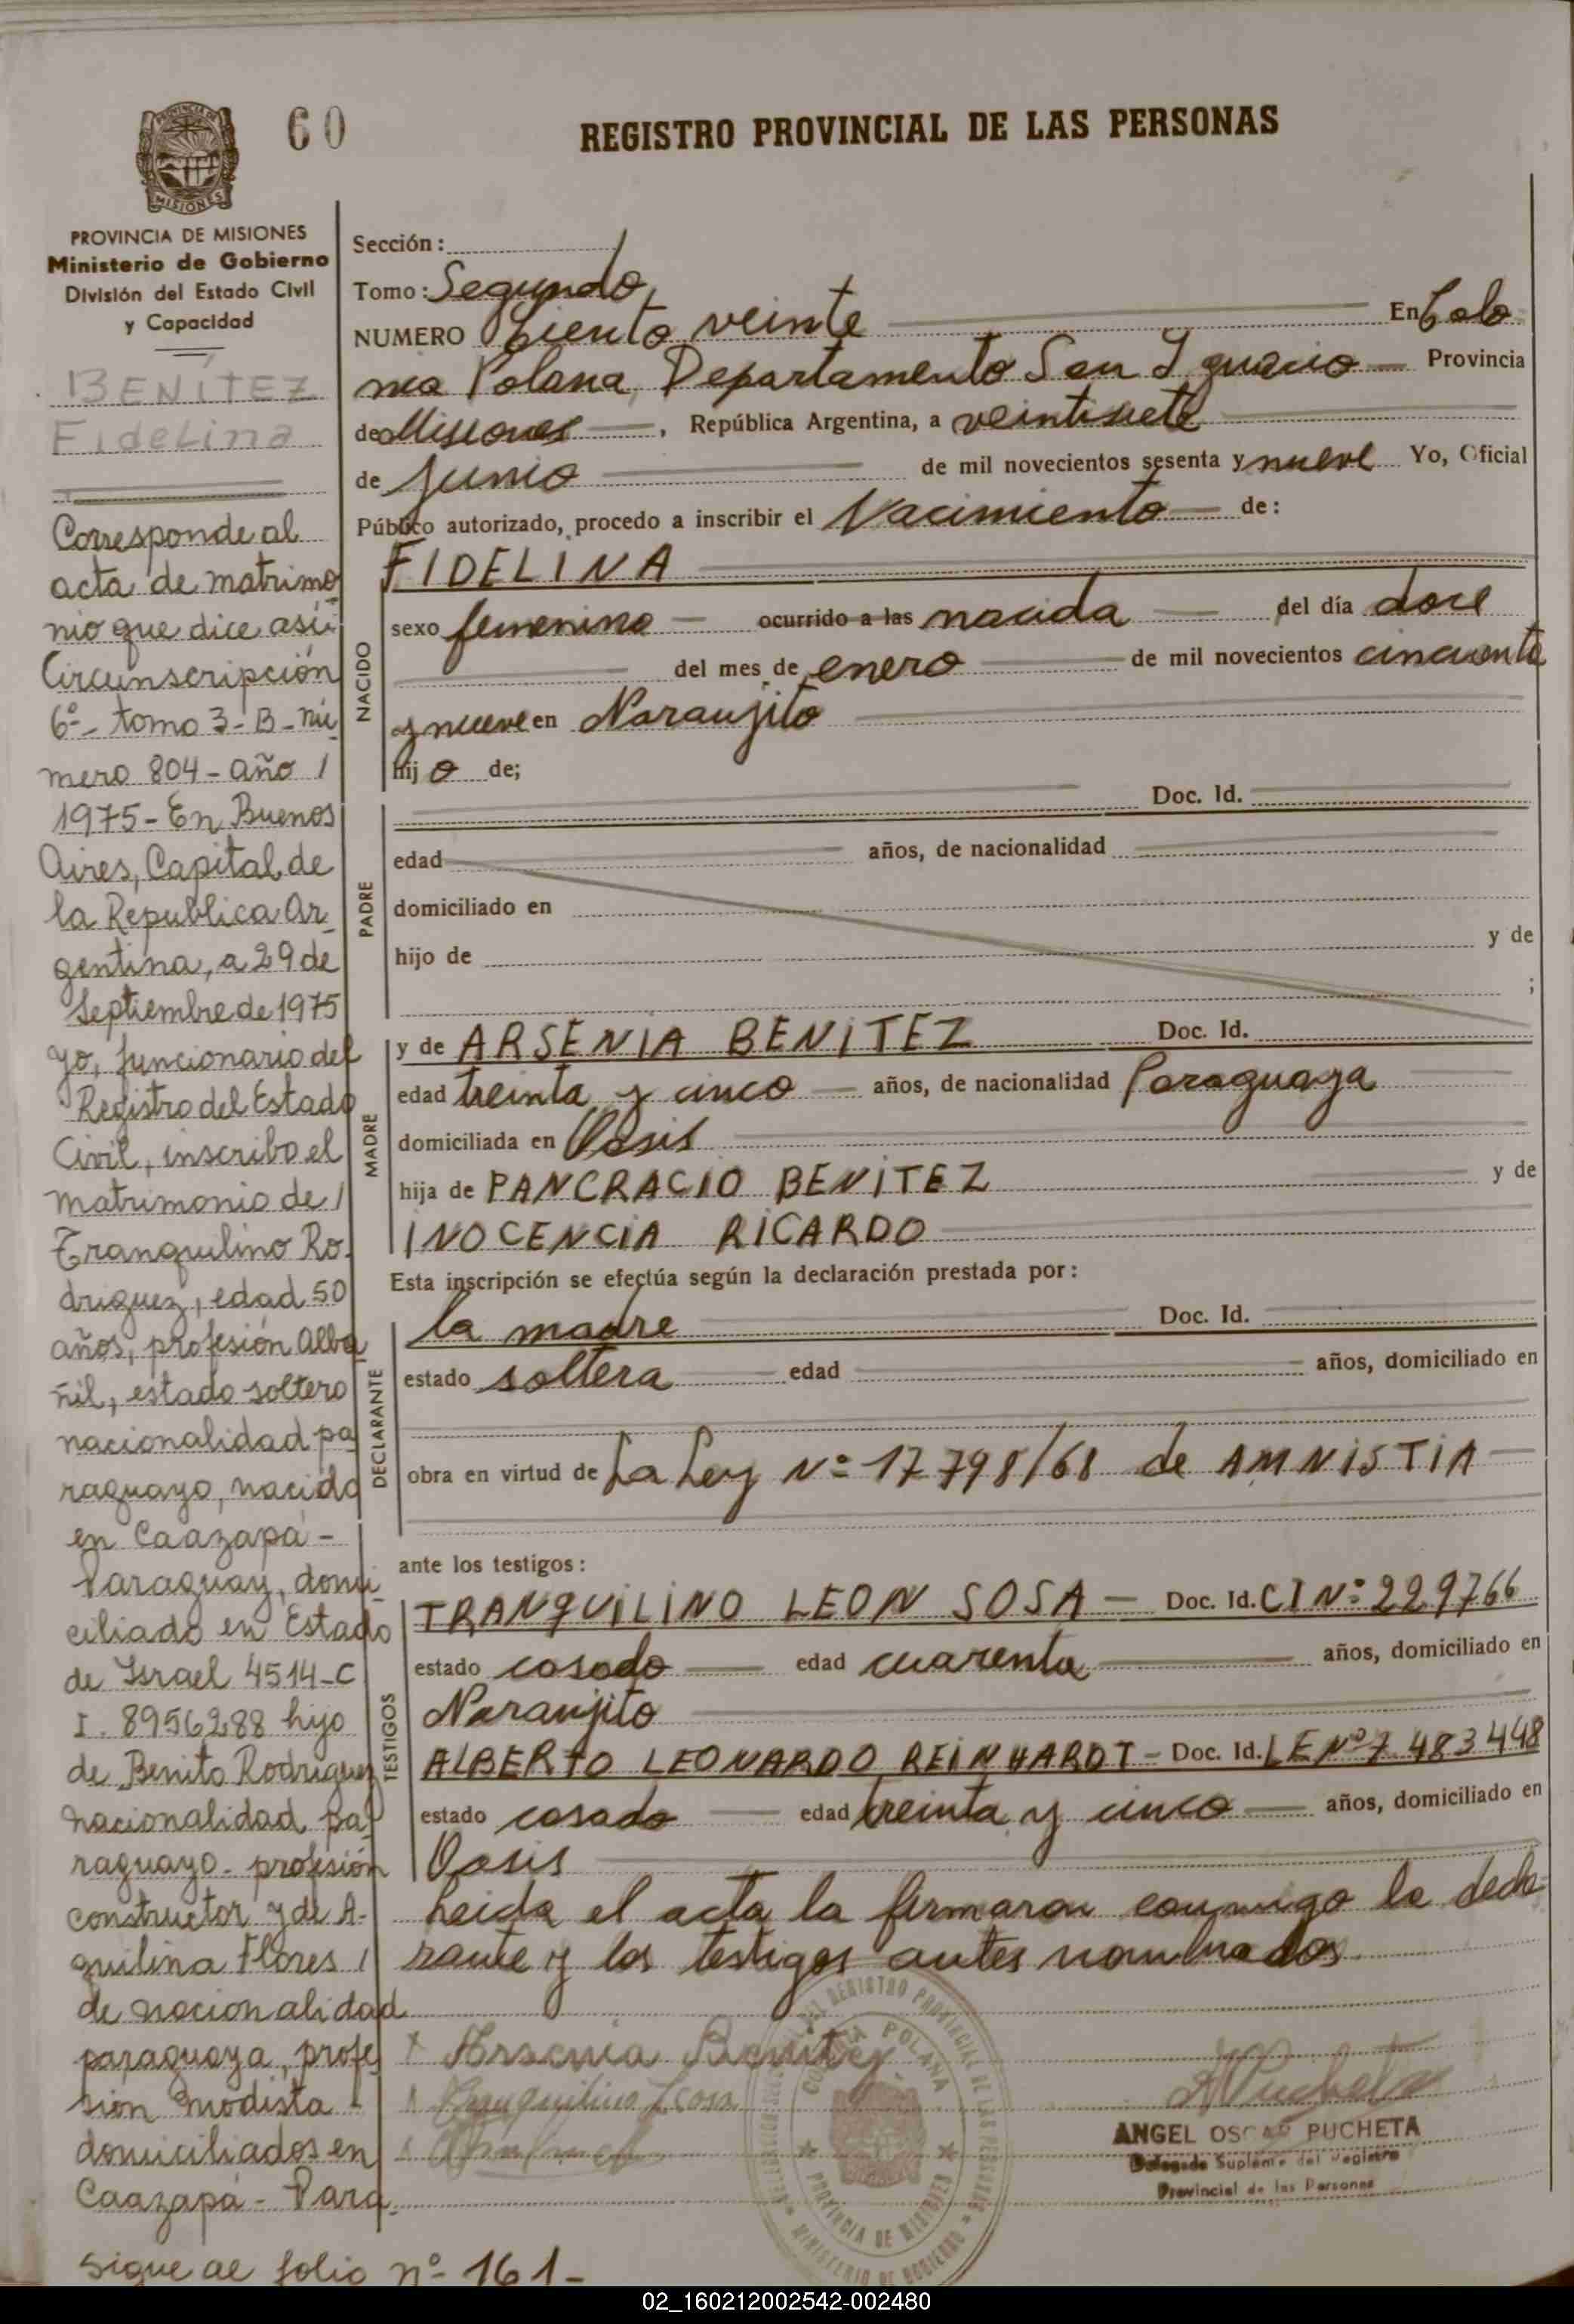 60
REGISTRO PROVINCIAL DE LAS PERSONAS
MISIONES
PROVINCIA DE MISIONES
Ministerio de Gobierno
División del Estado Civil
y Capacidad
BENÍTEZ
Fidelina
Corresponde al
acta de matrimo
nio que dice así:
Circunscripción
6º- tomo 3-B-nú
mero 804-año /
1975-En Buenos
Aires, Capital de
la Republica Ar
gentina, a 29 de
Septiembre de 1975
yo, funcionario del
Registro del Estado
Civil, inscribo el
matrimonio de /
Tranquilino Ro.
driguez, edad 50
años, profesión Alba
ñil, estado soltero
nacionalidad pa
raguayo, nacido
en Caazapá-
Paraguay, domi
ciliado en Estado
de Israel 4514-C
I. 8956288 hijo
de Benito Rodriguez
nacionalidad pa
raguayo-profesión
constructor y de A-
quilina Flores /
de nacionalidad
paraguaya, profe
sión modista
domiciliados en
Caazapá-Para
sigue al folio nº 161-
Sección:
Tomo: Segundo
NUMERO Ciento veinte En Colo
nia Polana, Departamento San Ignacio Provincia
de Misiones, República Argentina, a veintisiete
de Junio de mil novecientos sesenta y nueve Yo, Oficial
Público autorizado, procedo a inscribir el Nacimiento de:
FIDELINA
NACIDO
sexo femenino ocurrido a las nacida del día doce
del mes de enero de mil novecientos cincuenta
y nueve en Naranjito
hijo de;
PADRE
Doc. Id.
edad años, de nacionalidad
domiciliado en
hijo de y de
;
MADRE
y de ARSENIA BENITEZ Doc. Id.
edad treinta y cinco años, de nacionalidad Paraguaya
domiciliada en Oasis
hija de PANCRACIO BENITEZ y de
INOCENCIA RICARDO
Esta inscripción se efectúa según la declaración prestada por:
DECLARANTE
la madre Doc. Id.
estado soltera edad años, domiciliado en
obra en virtud de La Ley Nº 17.798/68 de AMNISTIA
ante los testigos:
TESTIGOS
TRANQUILINO LEON SOSA - Doc. Id. CI Nº 229766
estado casado edad cuarenta años, domiciliado en
Naranjito
ALBERTO LEONARDO REINHARDT - Doc. Id. LE Nº 7.483448
estado casado edad treinta y cinco años, domiciliado en
Oasis
Leida el acta la firmaron conmigo la decla-
rante y los testigos antes nombrados
x Arsenia Benitez
COLONIA POLANA
PROVINCIA DE MISIONES
ANGEL OSCAR PUCHETA
Delegado Suplente del Registro
Provincial de las Personas
02_160212002542-002480